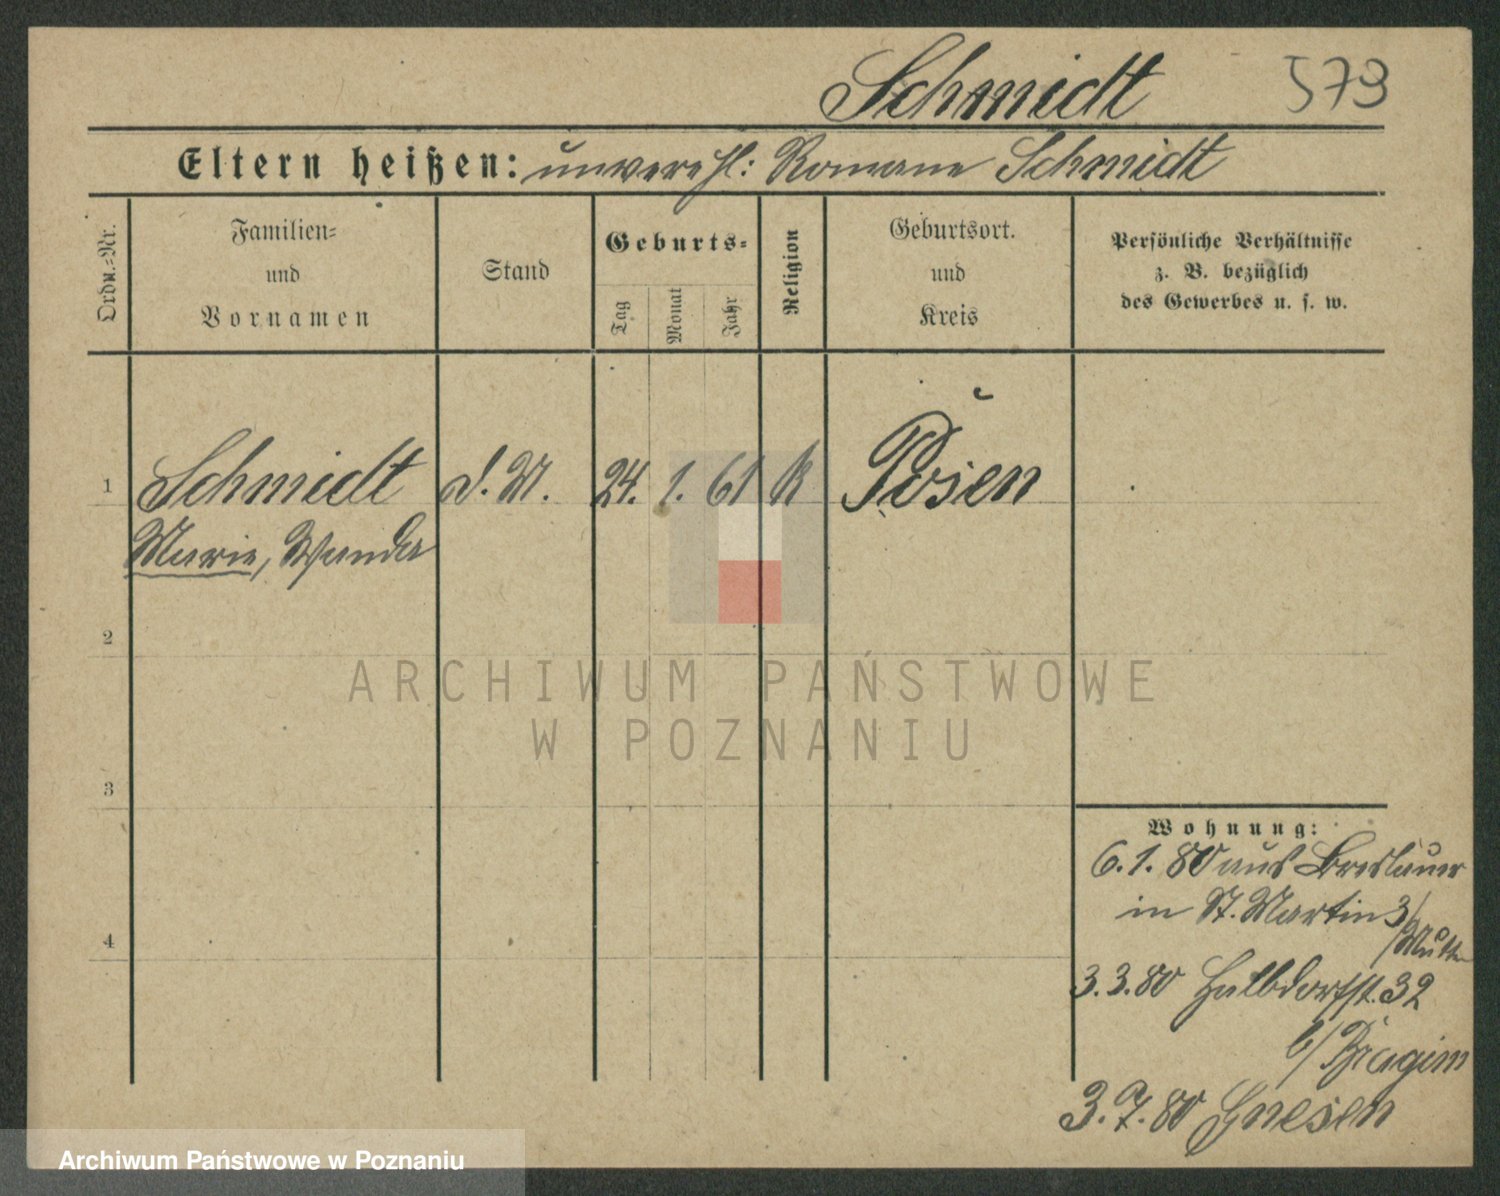 Schmidt 573
Eltern heißen: unverehl: Romane Schmidt
Ordn.=Nr.
Familien=
und
Vornamen
Stand
Geburts=
Tag
Monat
Jahr
Religion
Geburtsort.
und
Kreis
Persönliche Verhältnisse
z. B. bezüglich
des Gewerbes u. s. w.
1 Schmidt d. M. 24. 1. 61 k Posen
Marie, Wanda
2
ARCHIWUM PAŃSTWOWE
W POZNANIU
3
Wohnung:
6.1.80 aus Breslauer
in St. Martin 3/
/Mutter
4
3.3.80 Halbdorfst. 32
b/
3.7.80 Gnesen
Archiwum Państwowe w Poznaniu